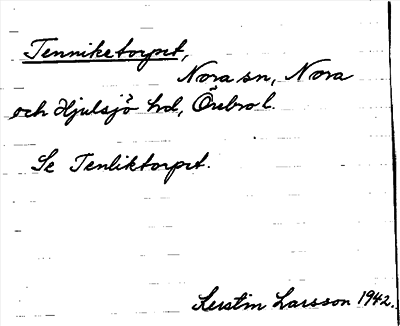 Tenniketorpet,
Nora sn, Nora
och Hjulsjö hd, Örebro l.
Se Tenliktorpet.
Kerstin Larsson 1942.